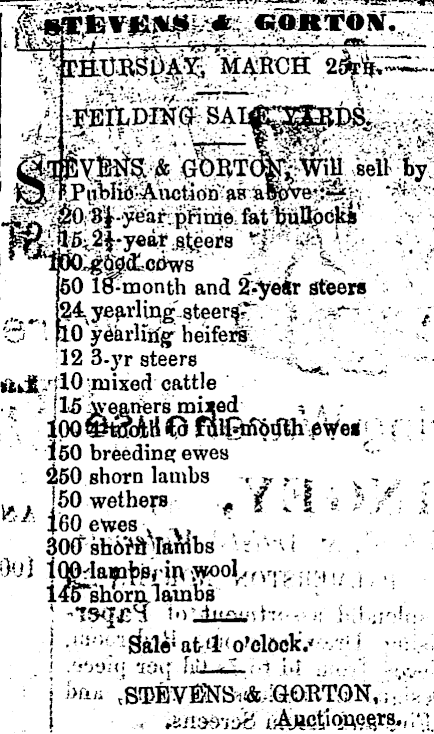 STEVENS & GORTON.
THURSDAY, MARCH 25TH.
FEILDING SALE YARDS.
STEVENS & GORTON, Will sell by
Public Auction as above—
20 3½-year prime fat bullocks
15 2½-year steers
100 good cows
50 18-month and 2-year steers
24 yearling steers
10 yearling heifers
12 3-yr steers
10 mixed cattle
15 weaners mixed
100 4-tooth to full-mouth ewes
150 breeding ewes
250 shorn lambs
50 wethers
160 ewes
300 shorn lambs
100 lambs, in wool
145 shorn lambs
Sale at 1 o'clock.
STEVENS & GORTON,
Auctioneers.